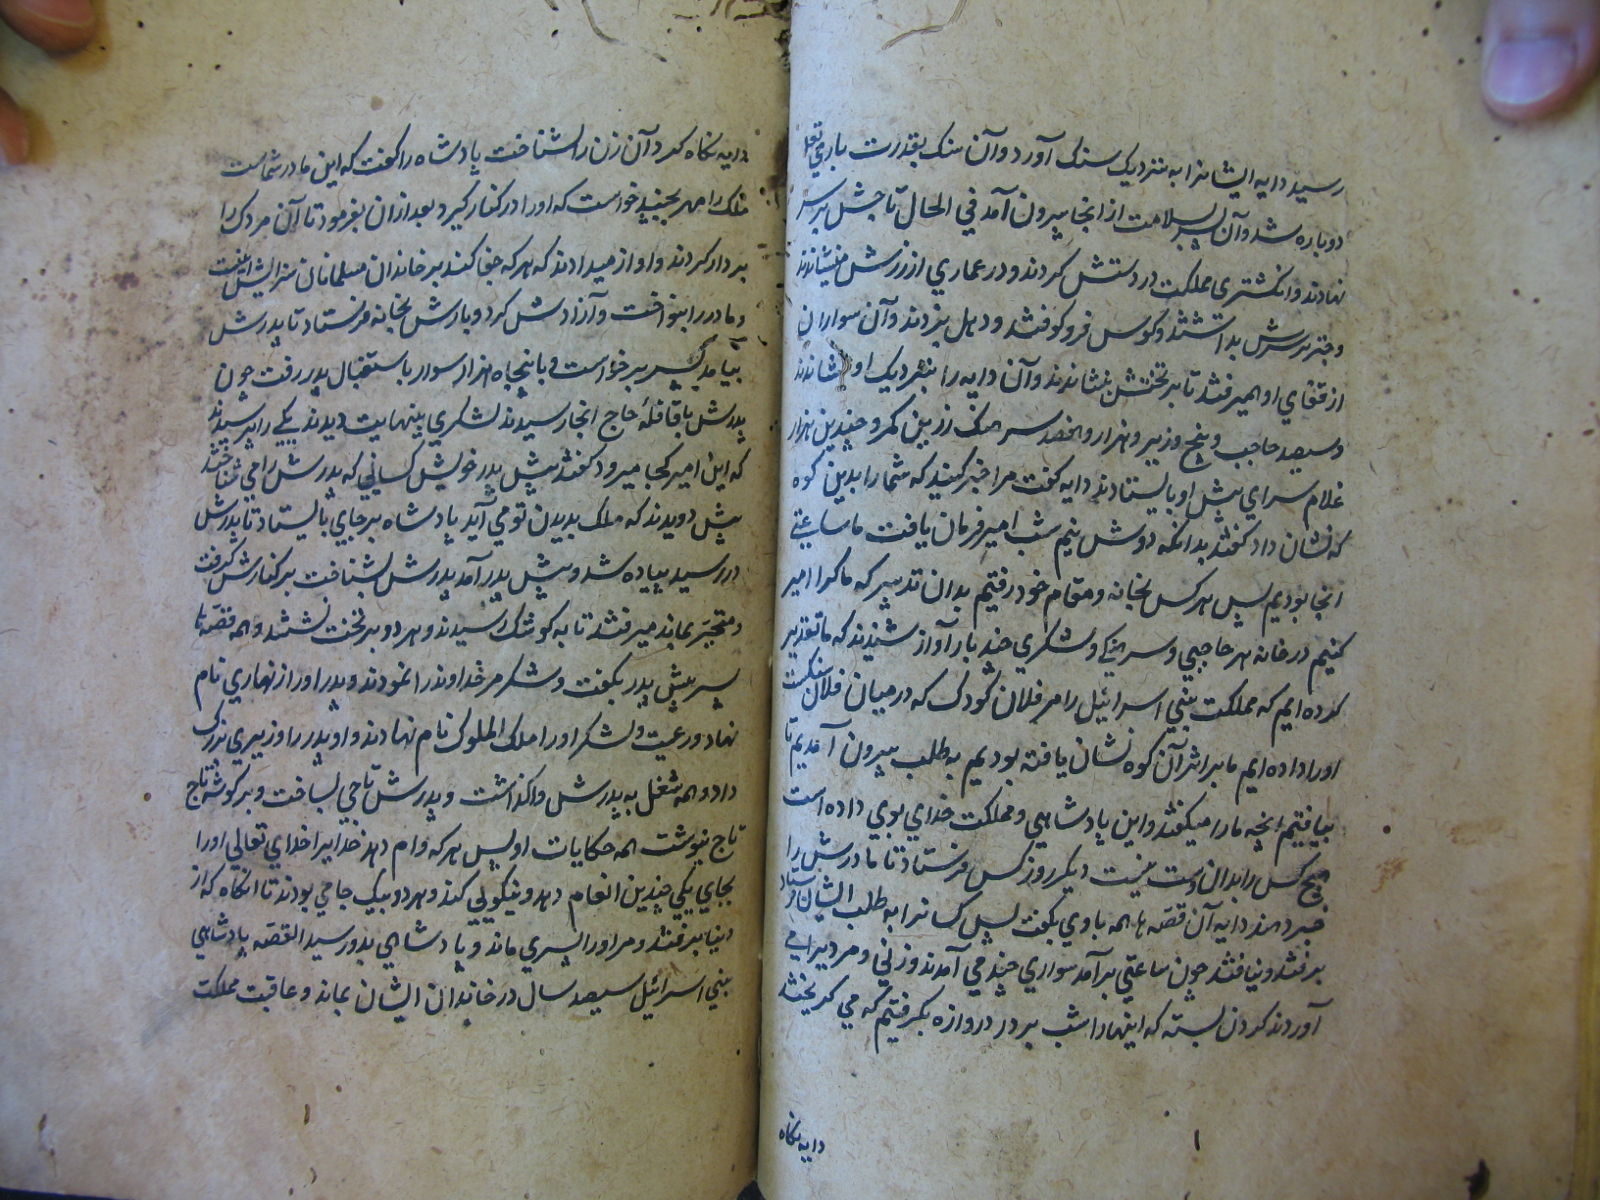 رسید دایه ایشانرا به نزدیک سنک آورد و آن سنک بقدرت باری تعالی
دوباره شد و آن پسر بسلامت از انجا بیرون آمد في الحال تا جش بر سر
نهادند و انکشتری مملکت در دستش کردند و در عماري از زرش بنشاندند
و چتر بر سرش بداشتند و کوس فرو کوفتند و دهل بزدند و آن سواران
از قفاي او همیرفتند تا بر تختش بنشاندند و آن دایه را بنزدیک او بنشاندند
و سیصد حاجب و پنج وزیر و هزار و پانصد سرهنک زرین کمر و چندین هزار
غلام سراي پیش او بایستادند دایه کفت مرا خبر کنید که شما را بدین کوه
که نشان داد کفتند بدانکه دوش نیم شب امیر فرمان یافت ما ساعتي
انجا بودیم پس هر کس بخانه و مقام خود رفتیم بدان تدبیر که ما کرا امیر
کنیم در خانه هر حاجبي و سرهنکي و لشکري چند بار آواز شنیدند که ما تقدیر
کرده ایم که مملکت بني اسرائیل را مر فلان کودک که در میان فلان سنکست
او را داده ایم ما بر اثر آن کوه نشان یافته بودیم به طلب بیرون آمدیم تا
بیافتیم انچه ما را میکفتند و این پادشاهي و مملکت خداي بوي داده است
هیچ کس را بدان دست نیست دیکر روز کس فرستاد تا مادرش را
خبر دهند دایه آن قصه ها همه باوي بکفت پس کسانرا به طلب ایشان فرستاد
برفتند و نیافتند چون ساعتي برآمد سواري چند مي آمدند و زني و مردیرا مي
آوردند کردن بسته که اینها را شب بر در دروازه بکرفتیم که مي کریختند
دایه نکاه
دایه نکاه کرد آن زن را بشناخت پادشاه را کفت که این مادر شماست
ملک را مهر بجنبید خواست که او را در کنار کیرد بعد ازان بفرمود تا آن مردک را
بر دار کردند و آواز میدادند که هر که جفا کند بر خاندان مسلمانان سزایش اینست
و مادر را بنواخت و آزادش کرد و بازش بخانه فرستاد تا پدرش
بیامد پسر برخواست و با پنجاه هزار سوار باستقبال پدر رفت چون
پدرش با قافلۀ حاج انجا رسیدند لشکري بینهایت دیدند یکي را پرسیدند
که این امیر کجا میرود کفتند پیش پدر خویش کساني که پدرش را مي شناختند
پیش دویدند که ملک بدیدن تو مي آید پادشاه بر جاي بایستاد تا پدرش
در رسید پیاده شد و پیش پدر آمد پدرش بشناخت بر کنارش کرفت
و متحیر بماند میرفتند تا به کوشک رسیدند و هر دو بر تخت نشستند و همه قصه ها
پسر پیش پدر بکفت و شکر مر خداوند را نمودند و پدر او را از نهاري نام
نهاد و رعیت و لشکر او را ملک الملوک نام نهادند و او پدر را وزیري بزرک
داد و همه شغل به پدرش واکذاشت و پدرش تاجي بساخت و بر کوشه تاج
تاج بنوشت همه حکایات او پس هر که وام دهد خدایرا خداي تعالي او را
بجاي یکي چندین انعام دهد و نیکویي کند و هر دو بیک جاي بودند تا آنکاه که از
دنیا برفتند و مر او را پسري ماند و پادشاهي بدو رسید القصه پادشاهي
بني اسرائیل سیصد سال در خاندان ایشان بماند و عاقبت مملکت